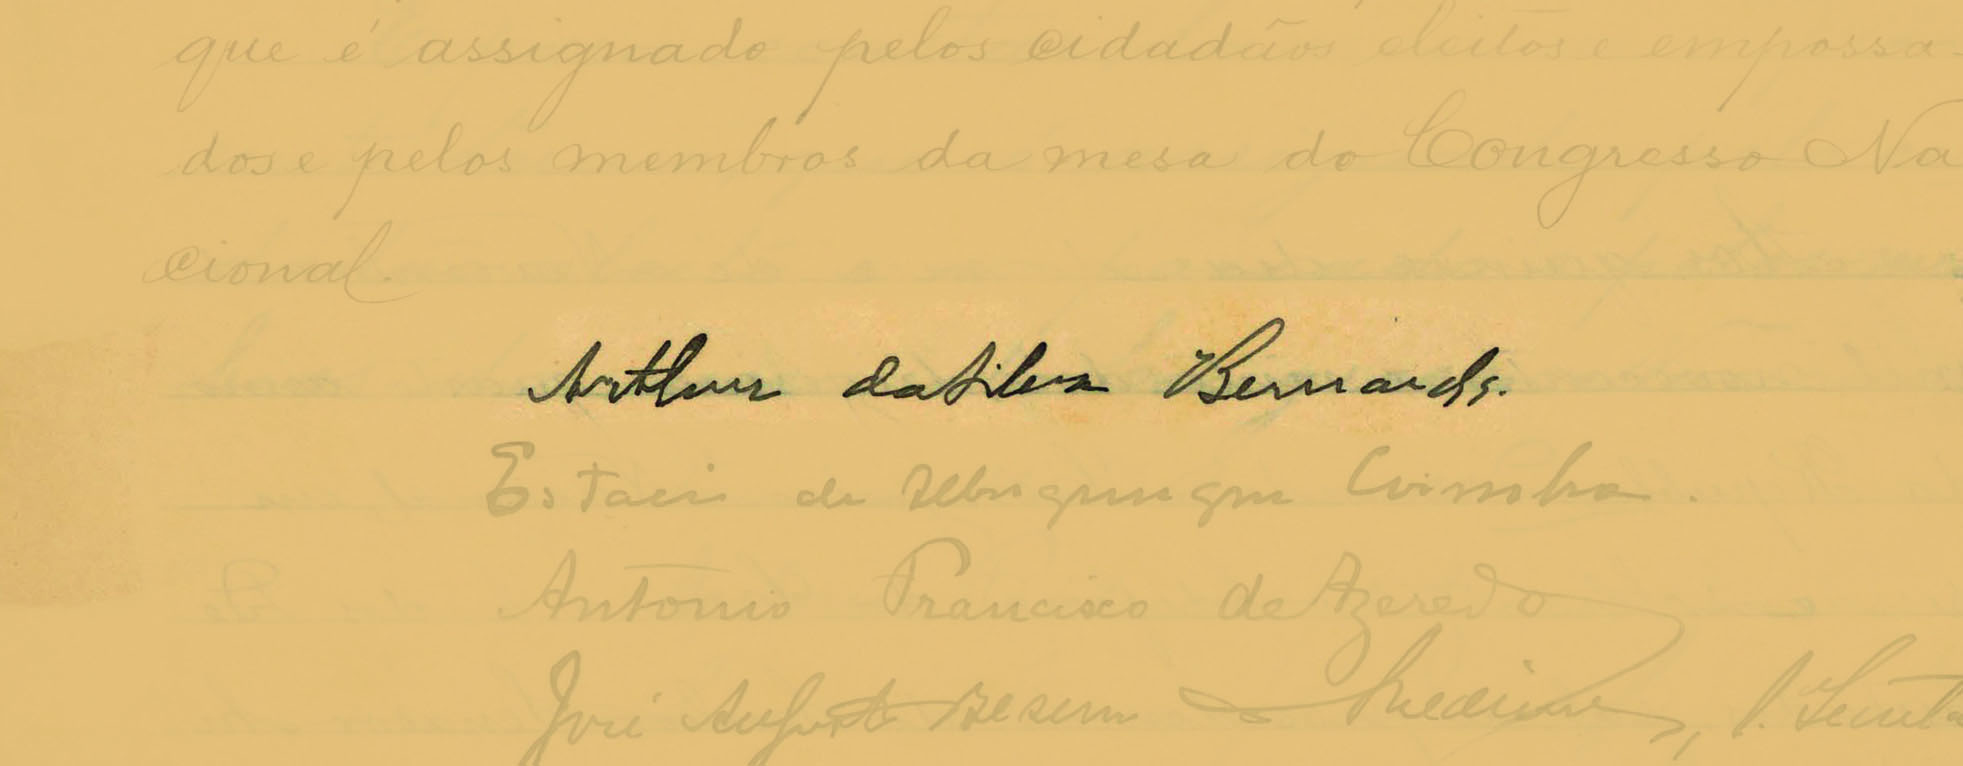 que é assignado pelos cidadãos eleitos e empossa-
dos e pelos membros da mesa do Congresso Na
cional.
Arthur da Silva Bernardes.
Estacio de Albuquerque Coimbra.
Antonio Francisco de Azeredo
José Augusto Bezerra de Medeiros, 1. Secreta